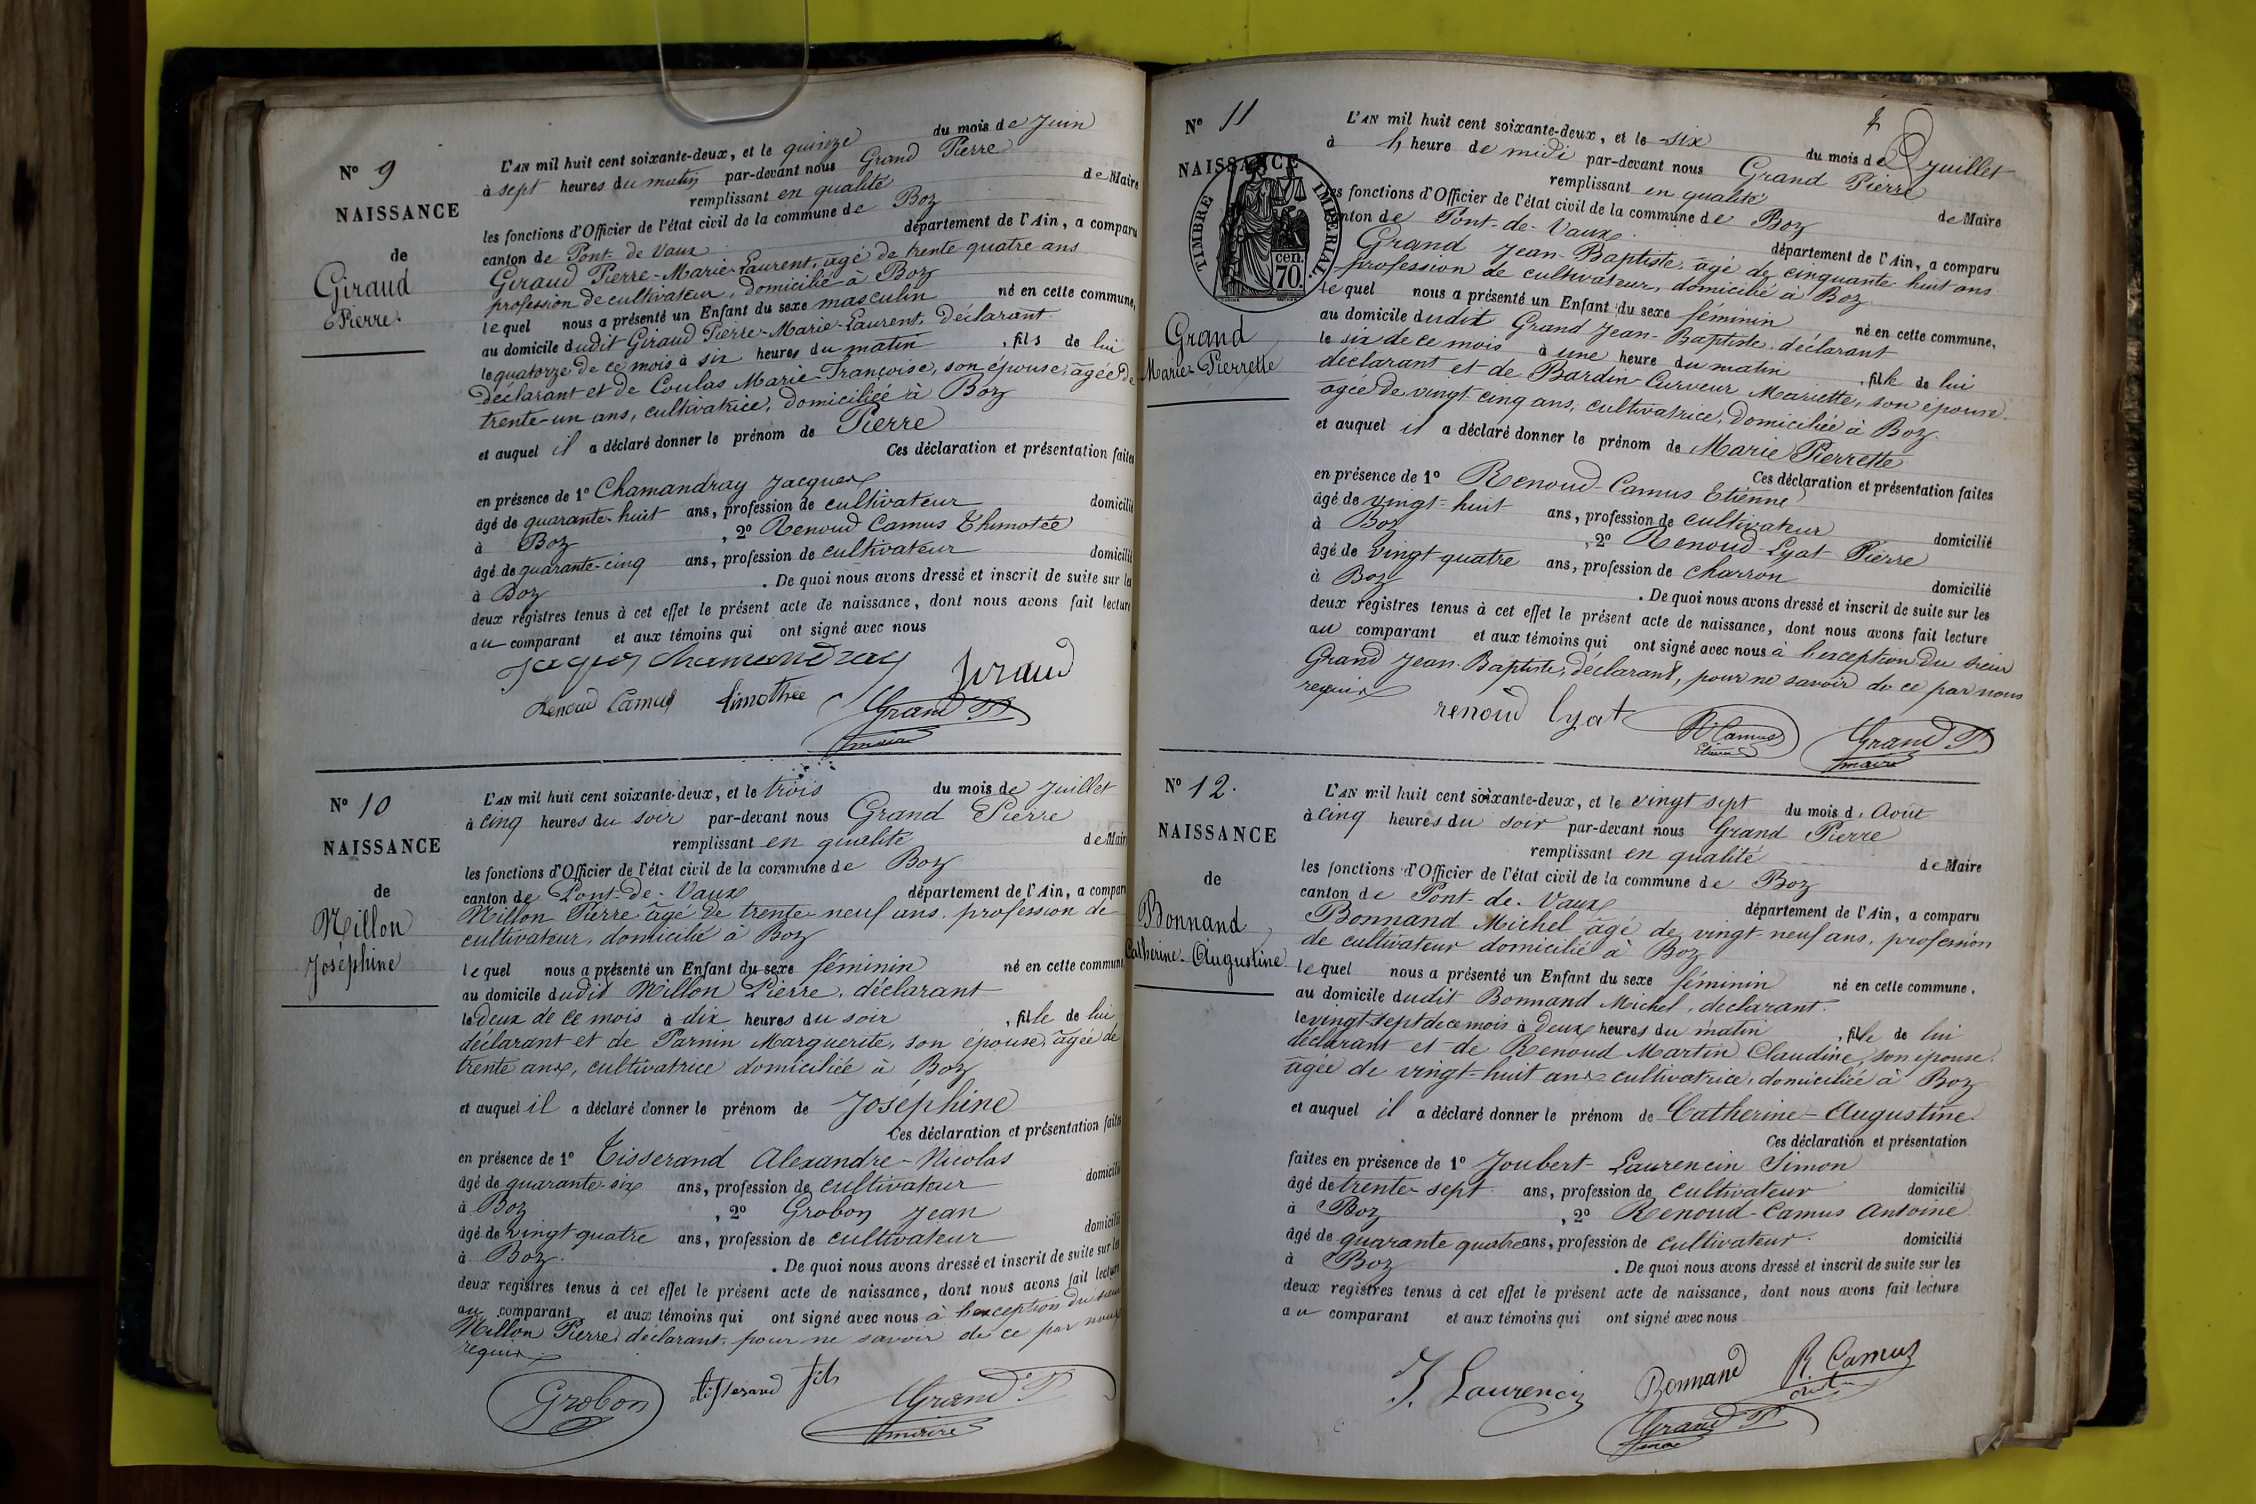 N° 9
NAISSANCE
de
Giraud
Pierre.
L'AN mil huit cent soixante-deux, et le quinze du mois de Juin
à sept heures du matin par-devant nous Grand Pierre
remplissant en qualité de Maire
les fonctions d'Officier de l'état civil de la commune de Boz
canton de Pont-de-Vaux département de l'Ain, a comparu
Giraud Pierre-Marie-Laurent, âgé de trente quatre ans
profession de cultivateur, domicilié à Boz
lequel nous a présenté un Enfant du sexe masculin né en cette commune,
au domicile dudit Giraud Pierre-Marie-Laurent, déclarant
le quatorze de ce mois à six heures du matin, fils de lui
déclarant et de Coulas Marie-Françoise, son épouse, âgée de
trente-un ans, cultivatrice, domiciliée à Boz
et auquel il a déclaré donner le prénom de Pierre
Ces déclaration et présentation faites
en présence de 1° Chamandray Jacques
âgé de quarante-huit ans, profession de cultivateur domicilié
à Boz, 2° Renoud Camus Thimotée
âgé de quarante-cinq ans, profession de cultivateur domicilié
à Boz. De quoi nous avons dressé et inscrit de suite sur les
deux registres tenus à cet effet le présent acte de naissance, dont nous avons fait lecture
au comparant et aux témoins qui ont signé avec nous
Jaques chamandray Giraud
Renoud Camus timothee Grand P.
maire
N° 10
NAISSANCE
de
Millon
Joséphine
L'AN mil huit cent soixante-deux, et le trois du mois de Juillet
à cinq heures du soir par-devant nous Grand Pierre
remplissant en qualité de Maire
les fonctions d'Officier de l'état civil de la commune de Boz
canton de Pont-de-Vaux département de l'Ain, a comparu
Millon Pierre âgé de trente-neuf ans, profession de
cultivateur, domicilié à Boz
lequel nous a présenté un Enfant du sexe féminin né en cette commune
au domicile dudit Millon Pierre, déclarant
le deux de ce mois à dix heures du soir, fille de lui
déclarant et de Parnin Marguerite, son épouse, âgée de
trente ans, cultivatrice domiciliée à Boz
et auquel il a déclaré donner le prénom de Joséphine
Ces déclaration et présentation faites
en présence de 1° Tisserand Alexandre-Nicolas
âgé de quarante-six ans, profession de cultivateur domicilié
à Boz, 2° Grobon Jean
âgé de vingt quatre ans, profession de cultivateur domicilié
à Boz. De quoi nous avons dressé et inscrit de suite sur les
deux registres tenus à cet effet le présent acte de naissance, dont nous avons fait lecture
au comparant et aux témoins qui ont signé avec nous à l'exception du sieur
Millon Pierre, déclarant, pour ne savoir de ce par nous
requis.
Grobon tisserand fils Grand P.
maire
N° 11
NAISSANCE
TIMBRE IMPÉRIAL.
70. cen.
Grand
Marie-Pierrette
L'AN mil huit cent soixante-deux, et le six du mois de Juillet
à heure de midi par-devant nous Grand Pierre
remplissant en qualité de Maire
les fonctions d'Officier de l'état civil de la commune de Boz
canton de Pont-de-Vaux département de l'Ain, a comparu
Grand Jean-Baptiste, âgé de cinquante-huit ans
profession de cultivateur, domicilié à Boz
lequel nous a présenté un Enfant du sexe féminin né en cette commune,
au domicile dudit Grand Jean-Baptiste, déclarant
le six de ce mois à une heure du matin, fille de lui
déclarant et de Bardin-Curveur Mariette, son épouse
âgée de vingt-cinq ans, cultivatrice, domiciliée à Boz.
et auquel il a déclaré donner le prénom de Marie Pierrette
Ces déclaration et présentation faites
en présence de 1° Renoud-Camus Etienne
âgé de vingt-huit ans, profession de cultivateur domicilié
à Boz, 2° Renoud-Lyat Pierre
âgé de vingt quatre ans, profession de charron domicilié
à Boz. De quoi nous avons dressé et inscrit de suite sur les
deux registres tenus à cet effet le présent acte de naissance, dont nous avons fait lecture
au comparant et aux témoins qui ont signé avec nous à l'exception du sieur
Grand Jean-Baptiste, déclarant, pour ne savoir de ce par nous
requis
renoud lyat R. Camus Etienne Grand P.
maire
N° 12.
NAISSANCE
de
Bonnand
Catherine-Augustine
L'AN mil huit cent soixante-deux, et le vingt sept du mois d'Août
à cinq heures du soir par-devant nous Grand Pierre
remplissant en qualité de Maire
les fonctions d'Officier de l'état civil de la commune de Boz
canton de Pont-de-Vaux département de l'Ain, a comparu
Bonnand Michel âgé de vingt-neuf ans, profession
de cultivateur domicilié à Boz
lequel nous a présenté un Enfant du sexe féminin né en cette commune,
au domicile dudit Bonnand Michel, déclarant.
le vingt-sept de ce mois à deux heures du matin, fille de lui
déclarant et de Renoud Martin Claudine, son épouse
âgée de vingt-huit ans cultivatrice, domiciliée à Boz
et auquel il a déclaré donner le prénom de Catherine-Augustine
Ces déclaration et présentation
faites en présence de 1° Joubert-Laurencin Simon
âgé de trente-sept ans, profession de cultivateur domicilié
à Boz, 2° Renoud-Camus Antoine
âgé de quarante quatre ans, profession de cultivateur. domicilié
à Boz. De quoi nous avons dressé et inscrit de suite sur les
deux registres tenus à cet effet le présent acte de naissance, dont nous avons fait lecture
au comparant et aux témoins qui ont signé avec nous
J. Laurencin Bonnand R. Camus
Grand P.
maire